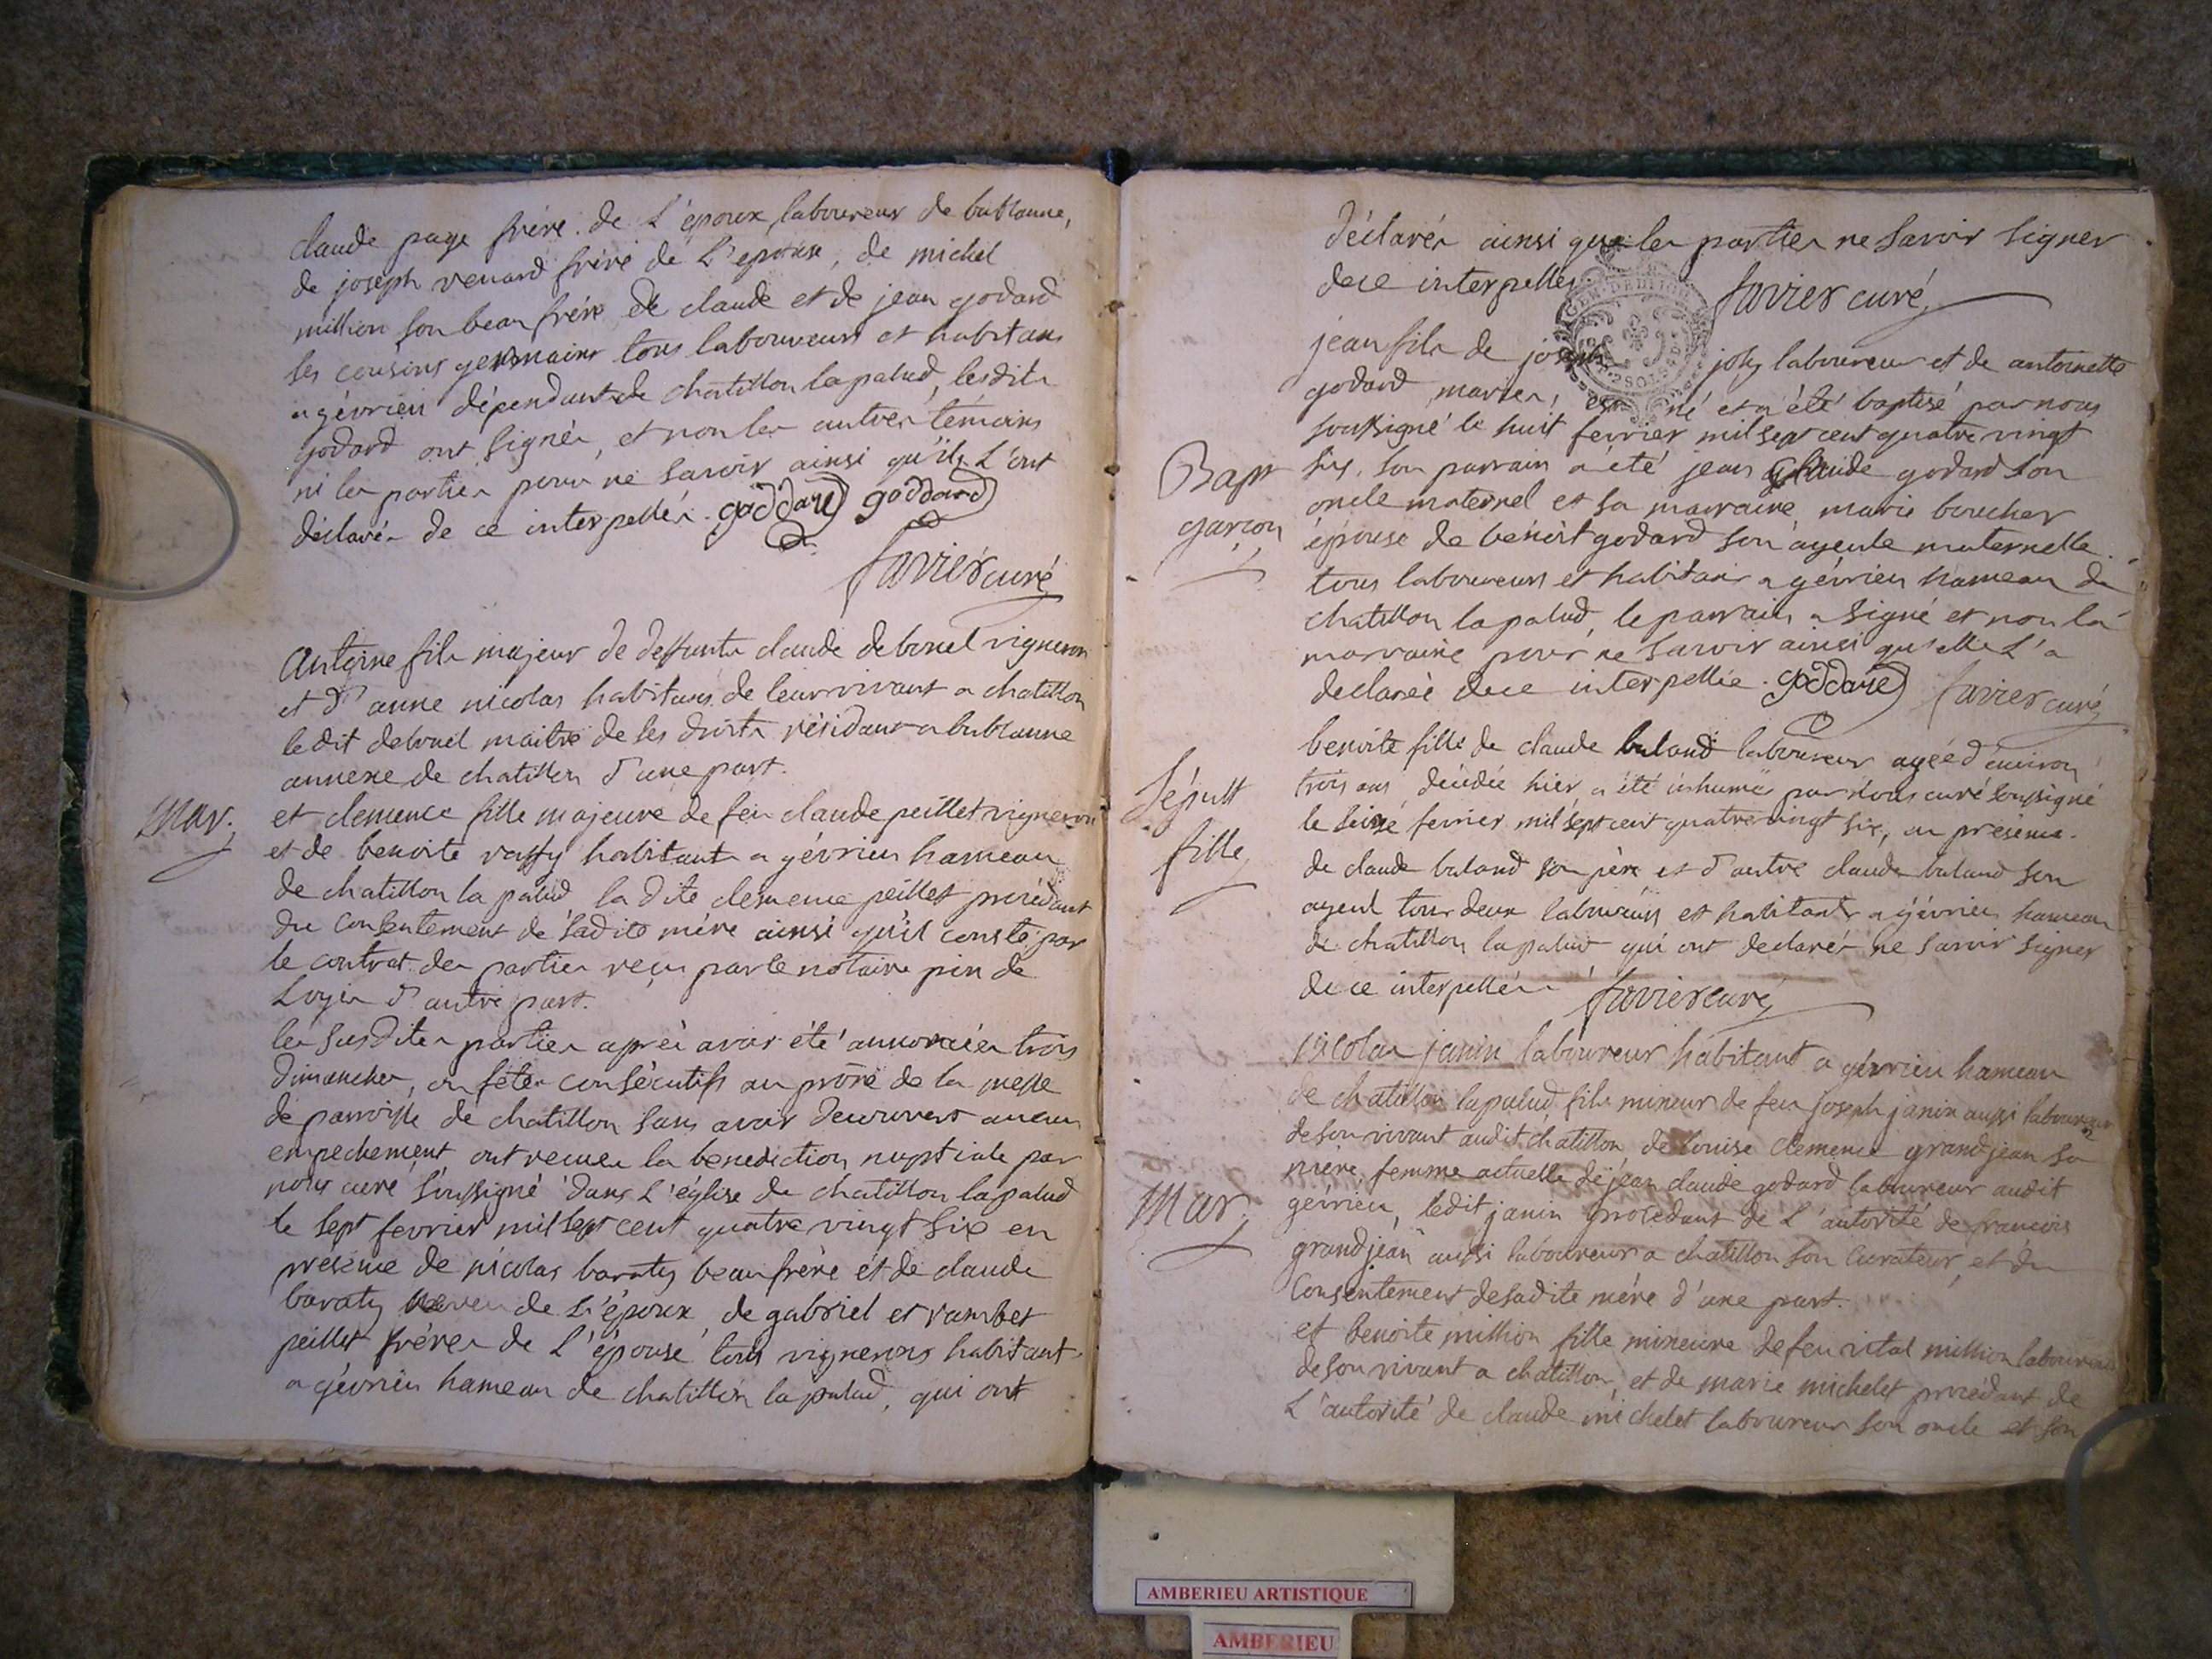 claude page frère de l'époux, laboureur de bublanne,
de joseph renard frère de l'epouse, de michel
million son beau frére de claude et de jean godard
ses cousins germains tous laboureurs et habitans
a gévrieu dépendant de chatillon la palud, lesdits
godard ont signés, et non les autres témoins
ni les parties pour ne savoir ainsi qu'ils l'ont
déclarés de ce interpellés. goddard goddard
favier curé
Mar.
Antoine fils majeur de deffunts claude debonel vigneron
et d'anne nicolas habitans de leur vivant a chatillon
le dit debonel maitre de ses droits résidant a bublanne
annexe de chatillon d'une part.
et clemence fille majeure de feu claude peillet vigneron
et de benoite raffy habitants a gévrieu hameau
de chatillon la palud la dite clemence peillet procédant
du consentement de sadite mére ainsi qu'il conste par
le contrat des parties reçu par le notaire pin de
Loyes d'autre part.
les susdites parties après avoir été annoncées trois
dimanches, ou fétes consécutifs au prône de la messe
de parroisse de chatillon sans avoir decouvert aucun
empechement ont recues la benediction nuptiale par
nous curé soussigné dans l'église de chatillon la palud
le sept fevrier mil sept cent quatre vingt six en
présence de nicolas baraty beau frère et de claude
baraty neveu de l'époux, de gabriel et rambet
peillet fréres de l'épouse tous vignerons habitants
a gévrieu hameau de chatillon la palud, qui ont
déclarés ainsi que les parties ne savoir signer
de ce interpellés favier curé
Bapt
garcon
jean fils de joseph joly laboureur et de antoinette
godard mariés, est né et a été baptisé par nous
soussigné le huit fevrier mil sept cent quatre vingt
six, son parrain a été jean claude godard son
oncle maternel et sa marraine marie boucher
épouse de benoit godard son ayeule maternelle.
tous laboureurs et habitans a gévrieu hameau de
chatillon la palud, le parrain a signé et non la
marraine pour ne savoir ainsi qu'elle l'a
declareé de ce interpellée. goddard favier curé
Sépult
fille
benoite fille de claude baland laboureur ageé d'environ
trois ans décédée hier a été inhumée par nous curé soussigné
le seize fevrier mil sept cent quatre vingt six, en présence
de claude baland son père et d'autre claude baland son
ayeul tous deux laboureurs et habitants a gévrieu hameau
de chatillon la palud qui ont declarés ne savoir signer
de ce interpellés favier curé
Mar.
Nicolas janin laboureur habitant a gévrieu hameau
de chatillon la palud fils mineur de feu joseph janin aussi laboureur
de son vivant audit chatillon, de louise clemence grandjean sa
mére, femme actuelle de jean claude godard laboureur audit
gevrieu, ledit janin procedant de l'autorité de francois
grandjean aussi laboureur a chatillon son curateur, et du
consentement de sadite mére d'une part.
et benoite million fille mineure de feu vital million laboureur
de son vivant a chatillon, et de marie michelet procédant de
l'autorité de claude michelet laboureur son oncle et son
AMBERIEU ARTISTIQUE
AMBERIEU